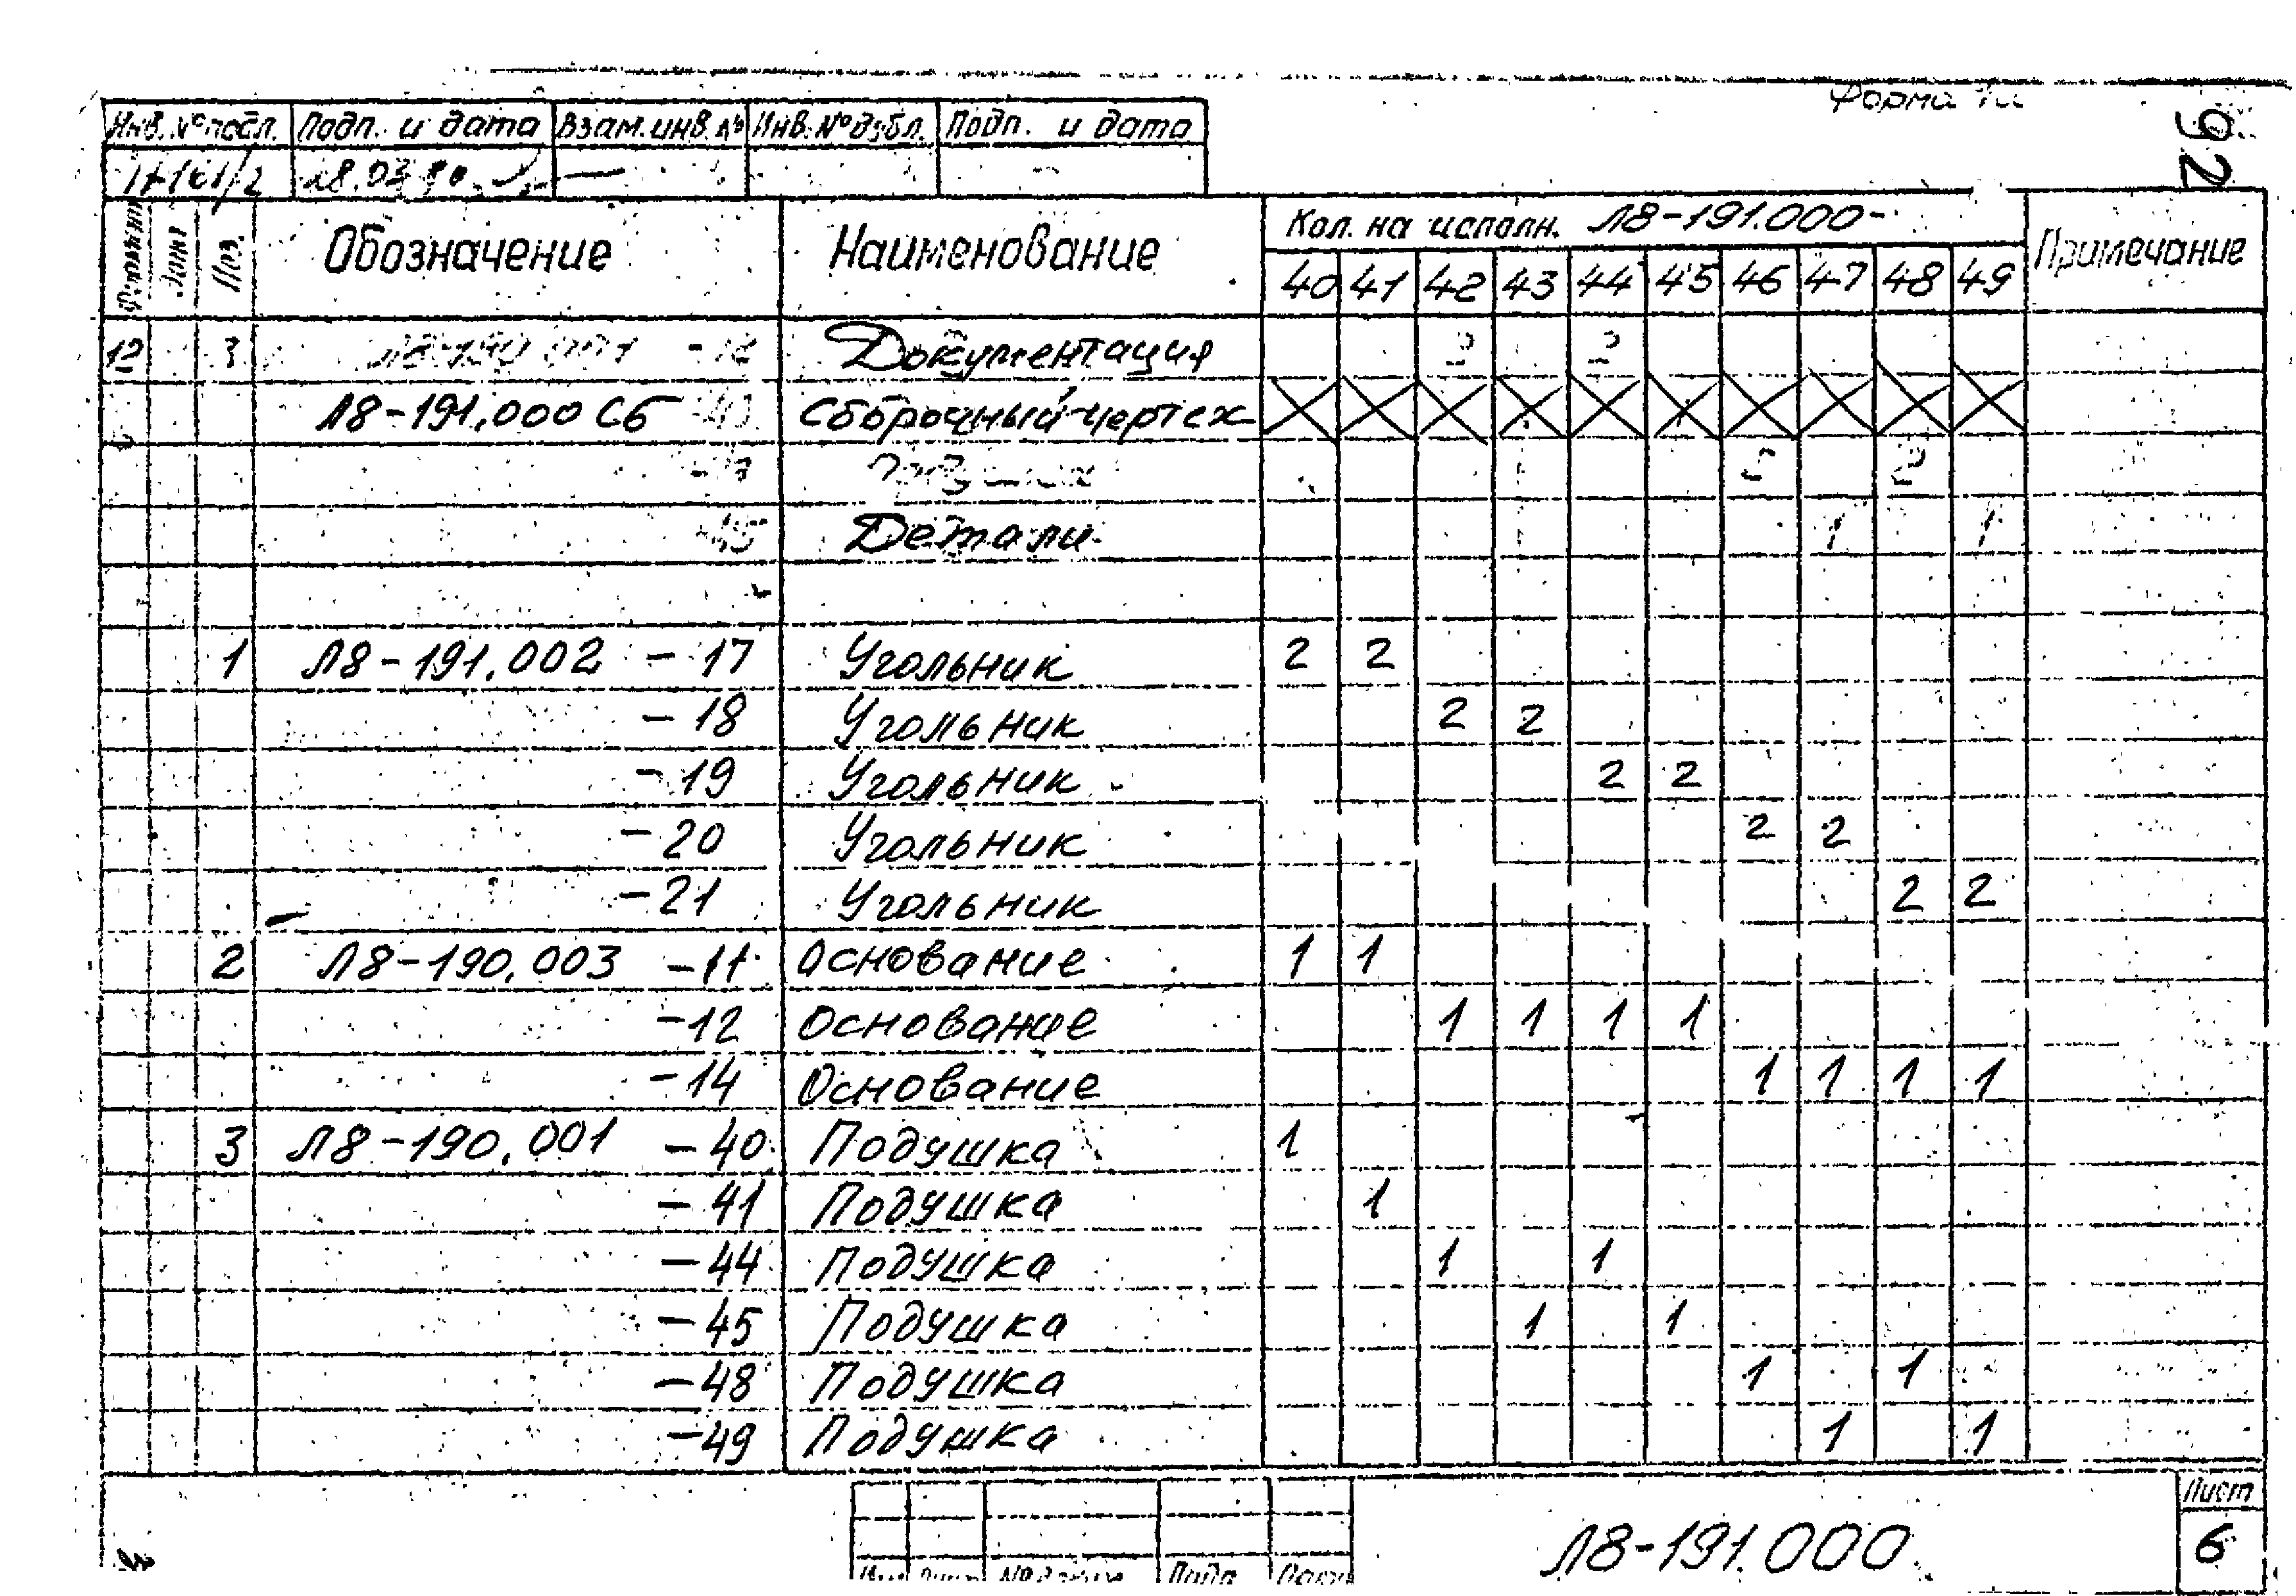 Форма
92
Инв. № подл. Подп. и дата Взам. инв. № Инв. № дубл. Подп. и дата
Поз. Обозначение Наименование Кол. на исполн. Л8-191.000- Примечание
40 41 42 43 44 45 46 47 48 49
Документация
Л8-191.000 Сб Сборочный чертеж
Детали
1 Л8-191.002 -17 Угольник 2 2
-18 Угольник 2 2
-19 Угольник 2 2
-20 Угольник 2 2
-21 Угольник 2 2
2 Л8-190.003 -11 Основание 1 1
-12 Основание 1 1 1 1
-14 Основание 1 1 1 1
3 Л8-190.001 -40 Подушка 1
-41 Подушка 1
-44 Подушка 1 1
-45 Подушка 1 1
-48 Подушка 1 1
-49 Подушка 1 1
Л8-191.000
Лист
6